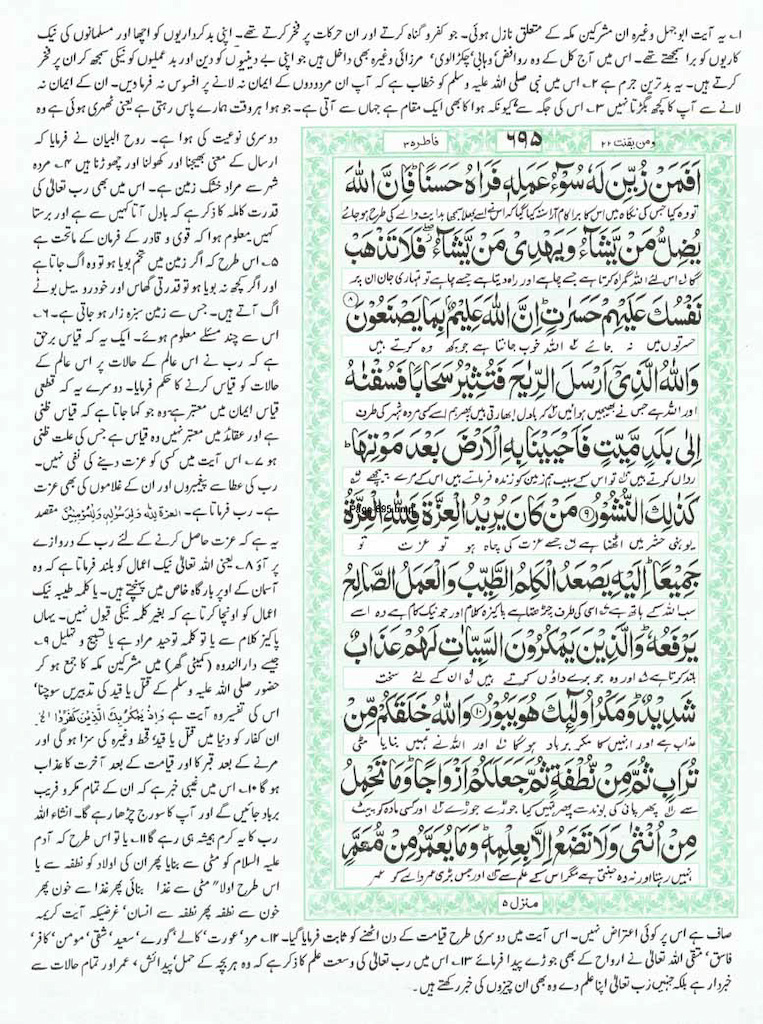 ۱۔ یہ آیت ابو جہل وغیرہ ان مشرکین مکہ کے متعلق نازل ہوئی۔ جو کفر و گناہ کرتے اور ان حرکات پر فخر کرتے تھے۔ اپنی بدکرداریوں کو اچھا اور مسلمانوں کی نیک
کاریوں کو برا سمجھتے تھے۔ اس میں آج کل کے وہ روافض، وہابی، چکڑالوی، مرزائی وغیرہ بھی داخل ہیں جو اپنی بے دینیوں کو دین اور بدعملیوں کو نیکی سمجھ کر ان پر فخر
کرتے ہیں۔ یہ بدترین جرم ہے ۲۔ اس میں نبی صلی اللہ علیہ وسلم کو خطاب ہے کہ آپ ان مردودوں کے ایمان نہ لانے پر افسوس نہ فرما دیں۔ ان کے ایمان نہ
لانے سے آپ کا کچھ بگڑتا نہیں ۳۔ اس کی جگہ سے، کیونکہ ہوا کا بھی ایک مقام ہے جہاں سے آتی ہے۔ جو ہوا ہر وقت ہمارے پاس رہتی ہے یعنی ٹھہری ہوئی ہے وہ
دوسری نوعیت کی ہوا ہے۔ روح البیان نے فرمایا کہ
ارسال کے معنی بھیجنا اور کھولنا اور چھوڑنا ہیں ۴۔ مردہ
شہر سے مراد خشک زمین ہے۔ اس میں بھی رب تعالیٰ کی
قدرت کاملہ کا ذکر ہے کہ بادل آتا کہیں سے ہے اور برستا
کہیں معلوم ہوا کہ قوی و قادر کے فرمان کے ماتحت ہے
۵۔ اس طرح کہ اگر زمین میں تخم بویا ہو تو وہ اگ جاتا ہے
اور اگر کچھ نہ بویا ہو تو قدرتی گھاس اور خودرو بیل بوٹے
اگ آتے ہیں۔ جس سے زمین سبزہ زار ہو جاتی ہے۔ ۶۔
اس سے چند مسئلے معلوم ہوئے۔ ایک یہ کہ قیاس برحق
ہے کہ رب نے اس عالم کے حالات پر اس عالم کے
حالات کو قیاس کرنے کا حکم فرمایا۔ دوسرے یہ کہ قطعی
قیاس ایمان میں معتبر ہے وہ جو کہا جاتا ہے کہ قیاس ظنی
ہے اور عقائد میں معتبر نہیں وہ قیاس ہے جس کی علت ظنی
ہو ۷۔ اس آیت میں کسی کو عزت دینے کی نفی نہیں۔
رب کی عطا سے پیغمبروں اور ان کے غلاموں کی بھی عزت
ہے۔ رب فرماتا ہے۔ العزة لله ولرسوله وللمؤمنين مقصد
یہ ہے کہ عزت حاصل کرنے کے لئے رب کے دروازے
پر آؤ ۸۔ یعنی اللہ تعالیٰ نیک اعمال کو بلند فرماتا ہے کہ وہ
آسمان کے اوپر بارگاہ خاص میں پہنچتے ہیں۔ یا کلمہ طیبہ نیک
اعمال کو اونچا کرتا ہے کہ بغیر کلمہ نیکی قبول نہیں۔ یہاں
پاکیز کلام سے یا تو کلمہ توحید مراد ہے یا تسبیح و تہلیل ۹۔
جیسے دارالندوہ (کمیٹی گھر) میں مشرکین مکہ کا جمع ہو کر
حضور صلی اللہ علیہ وسلم کے قتل یا قید کی تدبیریں سوچنا،
اس کی تفسیر وہ آیت ہے وَاِذْ يَمْكُرُ بِكَ الَّذِيْنَ كَفَرُوْا الخ
ان کفار کو دنیا میں قتل یا قید، قحط وغیرہ کی سزا ہو گی اور
مرنے کے بعد قبر کا اور قیامت کے بعد آخرت کا عذاب
ہو گا ۱۰۔ اس میں غیبی خبر ہے کہ ان کے تمام مکر و فریب
برباد جائیں گے اور آپ کا سورج چڑھا رہے گا۔ انشاء اللہ
رب کا یہ کرم ہمیشہ ہی رہے گا ۱۱۔ یا تو اس طرح کہ آدم
علیہ السلام کو مٹی سے بنایا پھر ان کی اولاد کو نطفہ سے یا
اس طرح اولا" مٹی سے غذا بنائی پھر غذا سے خون پھر
خون سے نطفہ پھر نطفہ سے انسان، غرضیکہ آیت کریمہ
ومن یقنت ۲۲
۶۹۵
فاطر ۳۵
اَفَمَنْ زُيِّنَ لَهٗ سُوْٓءُ عَمَلِهٖ فَرَاٰهُ حَسَنًا ؕ فَاِنَّ اللّٰهَ
تو وہ کیا جس کی نگاہ میں اس کا برا کام آراستہ کیا گیا کہ اس نے اسے بھلا سمجھا ہدایت والے کی طرح ہو جائے
يُضِلُّ مَنْ يَّشَآءُ وَيَهْدِيْ مَنْ يَّشَآءُ ۖ فَلَا تَذْهَبْ
گا اس لئے اللہ گمراہ کرتا ہے جسے چاہے اور راہ دیتا ہے جسے چاہے تو تمہاری جان ان پر
نَفْسُكَ عَلَيْهِمْ حَسَرٰتٍ ؕ اِنَّ اللّٰهَ عَلِيْمٌۢ بِمَا يَصْنَعُوْنَ ۸
حسرتوں میں نہ جائے اللہ خوب جانتا ہے جو کچھ وہ کرتے ہیں
وَاللّٰهُ الَّذِيْٓ اَرْسَلَ الرِّيٰحَ فَتُثِيْرُ سَحَابًا فَسُقْنٰهُ
اور اللہ ہے جس نے بھیجیں ہوائیں کہ بادل ابھارتی ہیں پھر ہم اسے کسی مردہ شہر کی طرف
اِلٰى بَلَدٍ مَّيِّتٍ فَاَحْيَيْنَا بِهِ الْاَرْضَ بَعْدَ مَوْتِهَا ؕ
رواں کرتے ہیں تو اس کے سبب ہم زمین کو زندہ فرماتے ہیں اس کے مرے پیچھے
كَذٰلِكَ النُّشُوْرُ ۹ مَنْ كَانَ يُرِيْدُ الْعِزَّةَ فَلِلّٰهِ الْعِزَّةُ
Page 695.bmp
یوں ہی حشر میں اٹھنا ہے جسے عزت کی چاہ ہو تو عزت تو
جَمِيْعًا ؕ اِلَيْهِ يَصْعَدُ الْكَلِمُ الطَّيِّبُ وَالْعَمَلُ الصَّالِحُ
سب اللہ کے ہاتھ ہے اسی کی طرف چڑھتا ہے پاکیزہ کلام اور جو نیک کام ہے وہ اسے
يَرْفَعُهٗ ؕ وَالَّذِيْنَ يَمْكُرُوْنَ السَّيِّاٰتِ لَهُمْ عَذَابٌ
بلند کرتا ہے اور وہ جو برے داؤں کرتے ہیں ان کے لئے سخت
شَدِيْدٌ ؕ وَمَكْرُ اُولٰٓئِكَ هُوَ يَبُوْرُ ۱۰ وَاللّٰهُ خَلَقَكُمْ مِّنْ
عذاب ہے اور انہیں کا مکر برباد ہو گا اور اللہ نے تمہیں بنایا مٹی
تُرَابٍ ثُمَّ مِنْ نُّطْفَةٍ ثُمَّ جَعَلَكُمْ اَزْوَاجًا ؕ وَمَا تَحْمِلُ
سے پھر پانی کی بوند سے پھر تمہیں کیا جوڑے جوڑے اور کسی مادہ کو پیٹ
مِنْ اُنْثٰى وَلَا تَضَعُ اِلَّا بِعِلْمِهٖ ؕ وَمَا يُعَمَّرُ مِنْ مُّعَمَّرٍ
نہیں رہتا اور نہ وہ جنتی ہے مگر اس کے علم سے اور جس بڑی عمر والے کو عمر
منزل ۵
صاف ہے اس پر کوئی اعتراض نہیں۔ اس آیت میں دوسری طرح قیامت کے دن اٹھنے کو ثابت فرمایا گیا۔ ۱۲۔ مرد، عورت، کالے، گورے، سعید، شقی، مومن، کافر،
فاسق، متقی اللہ تعالیٰ نے ارواح کے بھی جوڑے پیدا فرمائے ۱۳۔ اس میں رب تعالیٰ کی وسعت علم کا ذکر ہے کہ وہ ہر بچہ کے حمل، پیدائش، عمر اور تمام حالات سے
خبردار ہے بلکہ جنہیں رب تعالیٰ اپنا علم دے وہ بھی ان چیزوں کی خبر رکھتے ہیں۔